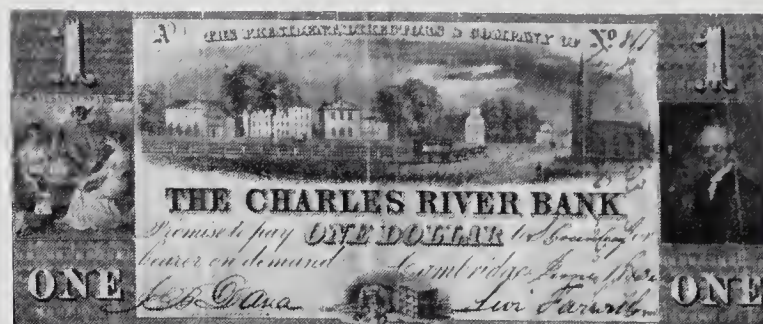 1 1
A THE PRESIDENT DIRECTORS & COMPANY OF No
THE CHARLES RIVER BANK
Promise to pay ONE DOLLAR to or
bearer on demand Cambridge June
ONE ONE
Dana Levi Farwell